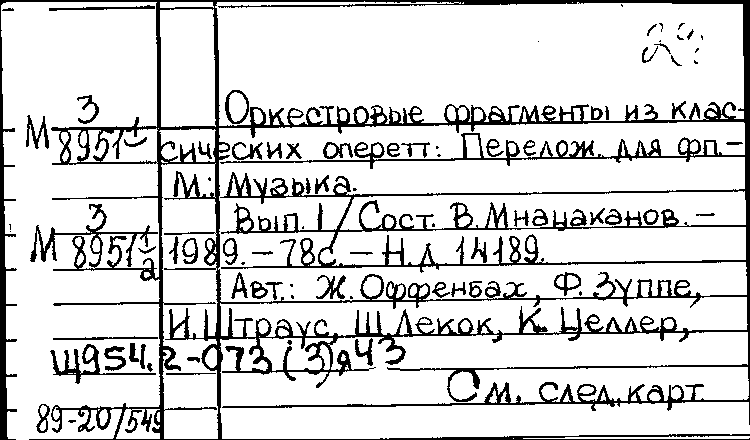 24
М 3/8951-1 Оркестровые фрагменты из клас-
сических оперетт: Перелож. для фп. –
М.: Музыка.
Вып. 1 / Сост. В. Мнацаканов. –
М 3/8951-1/а 1989. – 78с. – Н.д. 14189.
Авт.: Ж. Оффенбах, Ф. Зуппе,
И. Штраус, Ш. Лекок, К. Целлер,
Щ954.2-073(3)я43
См. след. карт.
89-20/549